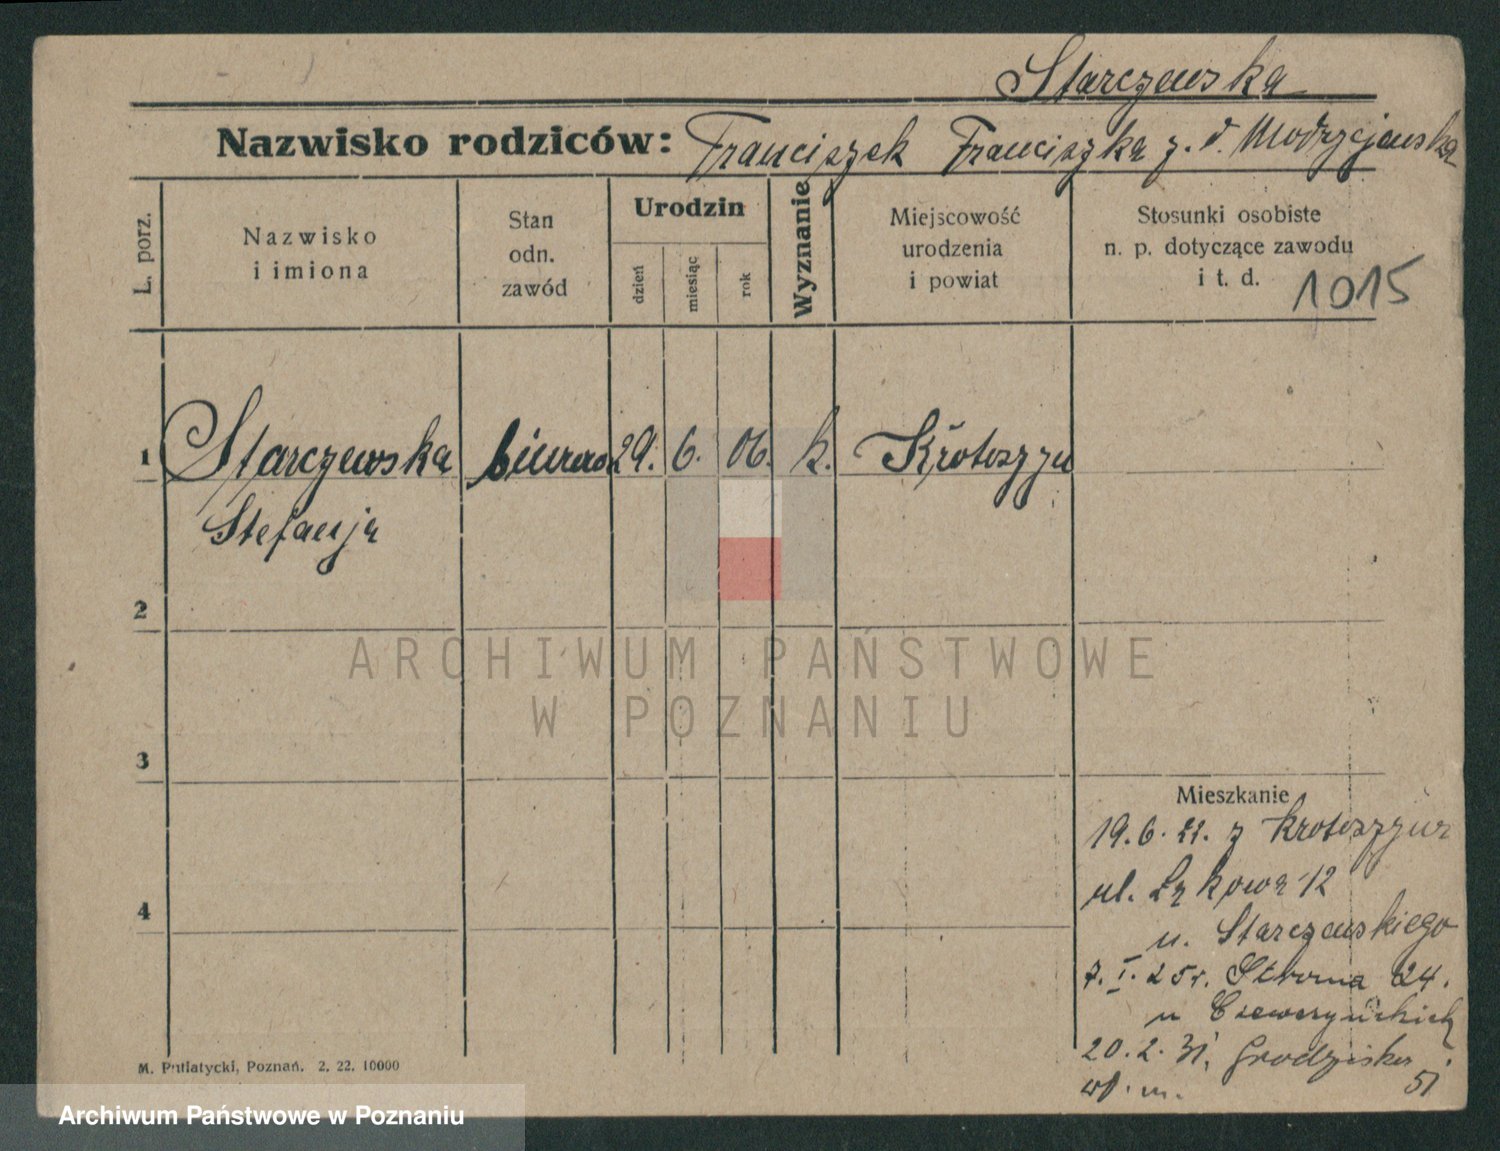 Starczewska
Nazwisko rodziców: Franciszek Franciszka z. d. Modrzejewska
L. porz.
Nazwisko
i imiona
Stan
odn.
zawód
Urodzin
dzień
miesiąc
rok
Wyznanie
Miejscowość
urodzenia
i powiat
Stosunki osobiste
n. p. dotyczące zawodu
i t. d.
1015
1 Starczewska 29. 6. 06. k. Krotoszyn
Stefanja
2
ARCHIWUM PAŃSTWOWE
W POZNANIU
3
4
Mieszkanie
19. 6. 22. z Krotoszyna
ul. Łąkowa 12
u. Starczewskiego
7. I. 25r. Stroma 24.
u
20. 2. 31. Grodziska
51
M. Putiatycki, Poznań. 2. 22. 10000
Archiwum Państwowe w Poznaniu